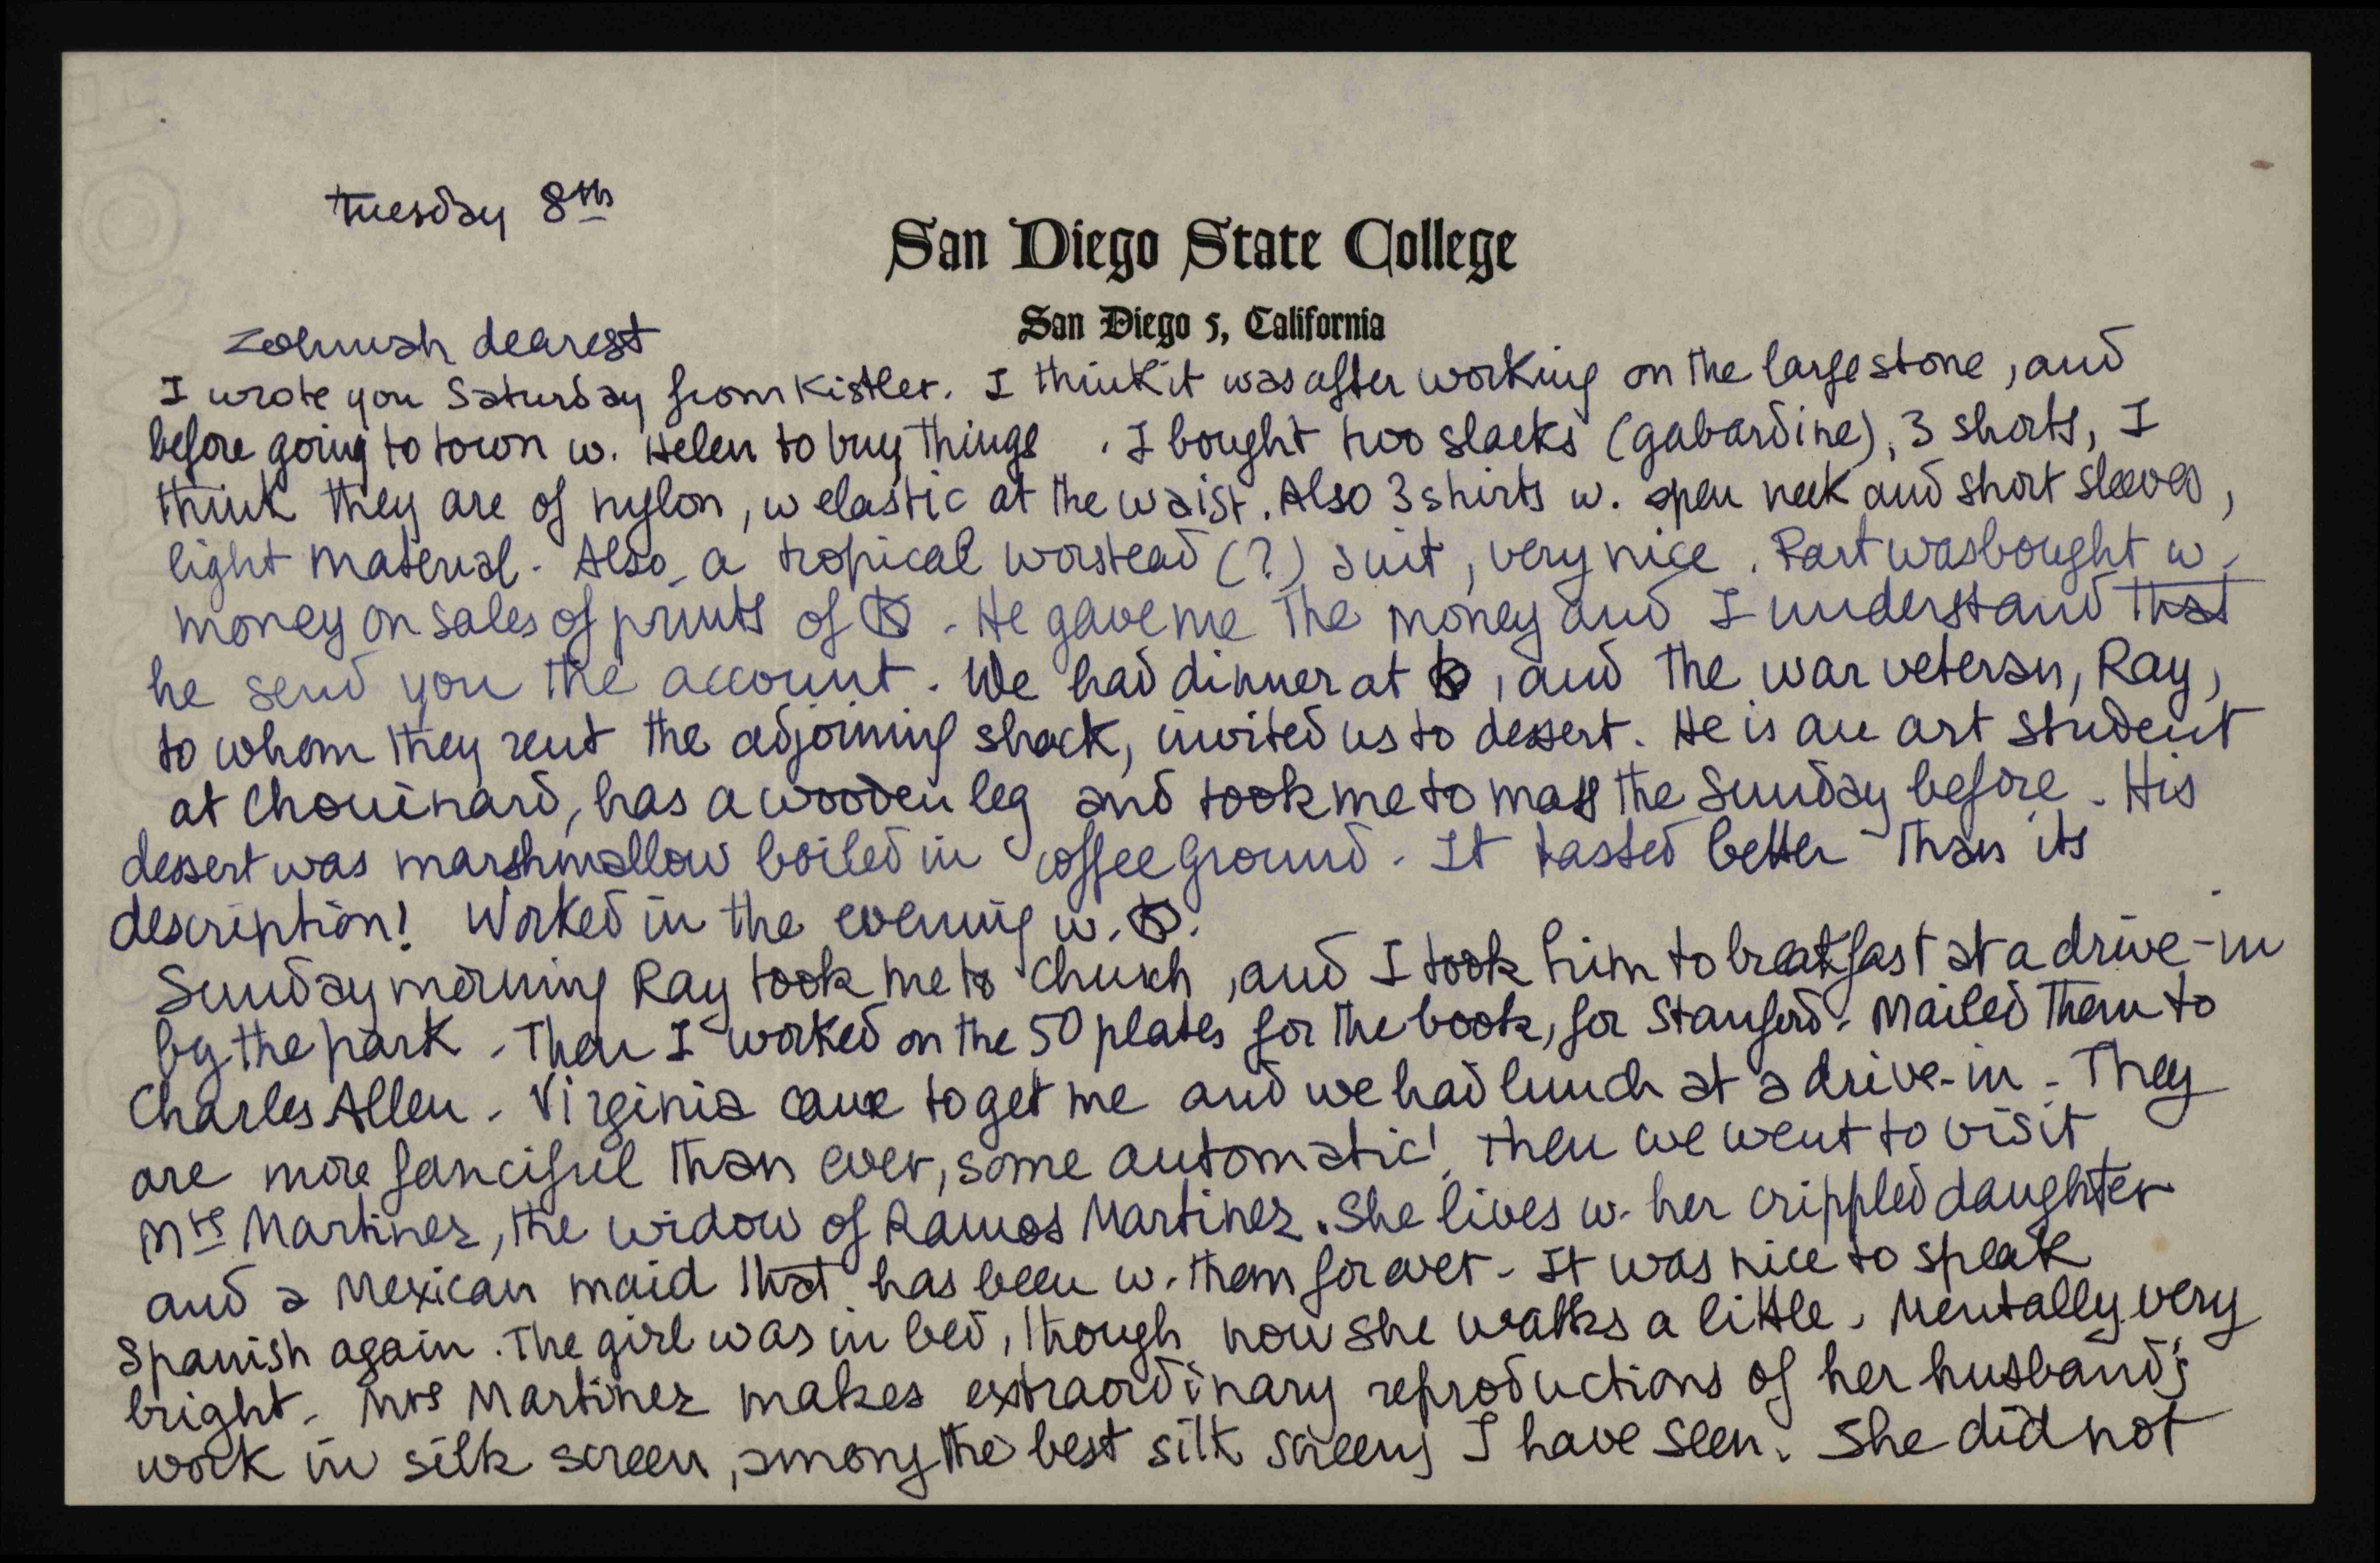 Tuesday 8th
San Diego State College
San Diego 5, California
Zohmah dearest
I wrote you Saturday from Kistler. I think it was after working on the large stone, and
before going to town w. Helen to buy things. I bought two slacks (gabardine), 3 shorts, I
think they are of nylon, w elastic at the waist. Also 3 shirts w. open neck and short sleeves,
light material. Also a tropical worstead (?) suit, very nice. Part was bought w.
money on sales of prints of K. He gave me the money and I understand that
he send you the account. We had dinner at K, and the war veteran, Ray,
to whom they rent the adjoining shack, invited us to dessert. He is an art student
at Chouinard, has a wooden leg and took me to mass the Sunday before. His
dessert was marshmallow boiled in coffee ground. It tasted better than its
description! Worked in the evening w. K.
Sunday morning Ray took me to church, and I took him to breakfast at a drive-in
by the park. Then I worked on the 50 plates for the book, for Stanford. Mailed them to
Charles Allen. Virginia came to get me and we had lunch at a drive-in. They
are more fanciful than ever, some automatic! Then we went to visit
Mrs Martinez, the widow of Ramos Martinez. She lives w. her crippled daughter
and a Mexican maid that has been w. them for ever. It was nice to speak
Spanish again. The girl was in bed, though now she walks a little. Mentally very
bright. Mrs Martinez makes extraordinary reproductions of her husband's
work in silk screen, among the best silk screens I have seen. She did not